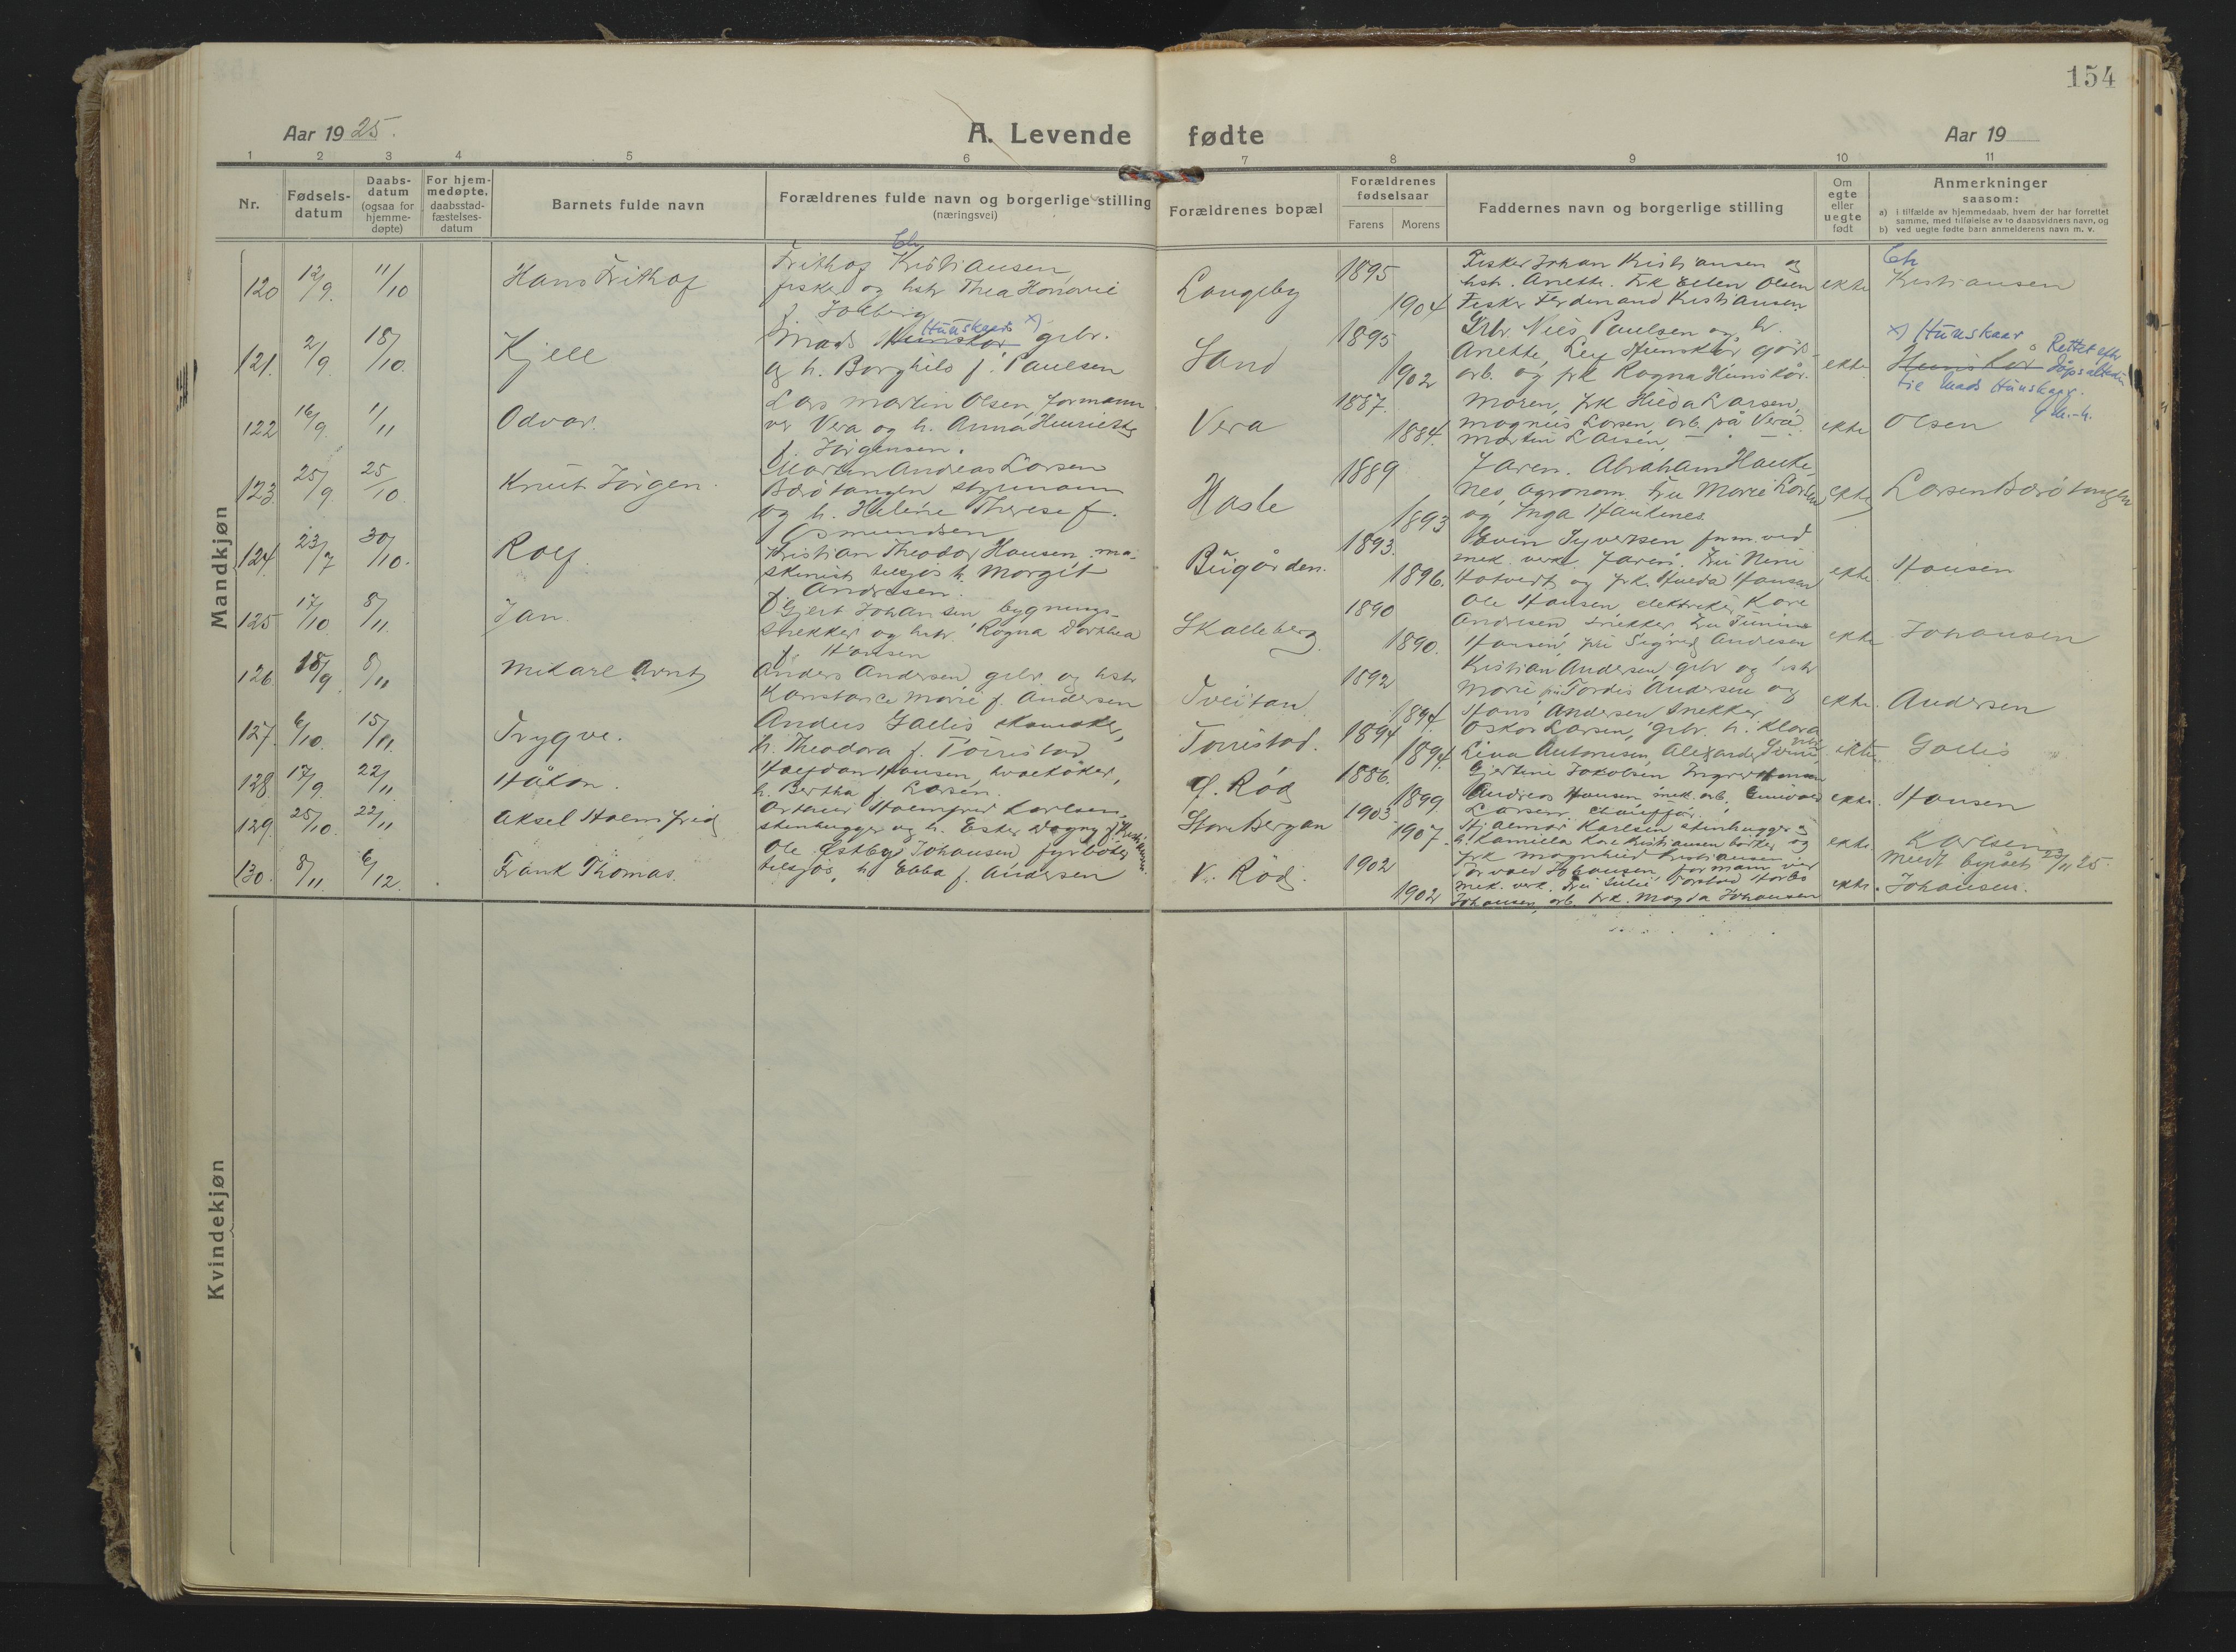 154
Aar 1925.
A. Levende fødte
Aar 19
1 2 3 4 5 6 7 8 9 10 11
Nr.
Fødsels-
datum
Daabs-
datum
(ogsaa for
hjemme-
døpte)
For hjem-
medøpte.
daabsstad-
fæstelses-
datum
Barnets fulde navn
Forældrenes fulde navn og borgerlige stilling
(næringsvei)
Forældrenes bopæl
Forældrenes
fødselsaar
Farens Morens
Faddernes navn og borgerlige stilling
Om
egte
eller
uegte
født
Anmerkninger
saasom:
a) i tilfælde av hjemmedaab, hvem der har forrettet
samme, med tilføielse av to daabsvidners navn, og
b) ved uegte fødte barn anmelderens navn m. v.
Mandkjøn
120 12/9. 11/10 Hans Frithof
Ch
Frithof Kristiansen,
fisker og hstr Thea Honorie
f. Solberg
Langeby
1895
1904
Fisker Johan Kristiansen og
hstr. Anette. Frk Ellen Olsen
Fisker Ferdinand Kristiansen
ekte
Ch
Kristiansen
121. 2/9. 18/10. Kjell
Hunskaar x)
Mads Hunskor gbr.
og h. Borghild f. Paulsen
Sand
1895
1902
Gbr. Nils Paulsen og h.
Anette, Leif Hunskår gårds
arb. og frk Ragna Hunskår.
ekte
x) Hunskaar
Hunskor Rettet efter
dåpsattesten
til Mads Hunskaar.
122 16/9. 1/11 Odvar.
Lars Martin Olsen, formann
ver Vera og h. Anna Henriette
f. Jørgensen.
Vera
1887.
1884.
Moren, frk Hilda Larsen,
Magnus Larsen, arb. på Vera.
Martin Larsen,
ekte
Olsen
123. 25/9. 25/10. Knut Jörgen.
Martin Andreas Larsen
Bærötangen styrmann
og h. Helene Therese f.
Osmundsen
Hasle
1889
1893
Faren. Abraham Hauke-
nes, agronom. Fru Marie Larsen
og Inga Haukenes.
ekte
Larsen Bærötangen
124. 23/7 30/10. Rolf
Kristian Theodor Hansen ma-
skinist tilsjøs h. Margit
f. Andresen.
Bugården.
1893.
1896.
Evin Syversen fnm. ved
mek. verk. Faren. Fru Nini
Hotvedt og frk. Hulda Hansen
ekte
Hansen
125 17/10 8/11. Jan.
Gjert Johansen bygnings-
snekker og hstr. Ragna Dorthea
f. Hansen
Skalleberg.
1890
1890.
Ole Hansen, elektriker, Kare
Andresen snekker Fru
Hansen, fru Signe Andresen
ekte
Johansen
126. 18/9. 8/11 Mikael Arnt
Anders Andersen gbr. og hstr
Konstance Marie f. Andersen
Tveitan
1892
1894.
Kristian Andersen, gbr og hstr
Marie frk Tordis Andersen og
Hans Andersen snekker
ekte.
Andersen
127. 6/10. 15/11. Trygve.
Anders Gallis skomaker,
h. Theodora f. Torrestad
Torrestad.
1894
1894.
Oskar Larsen, gbr. h. Klara
Lina Antonsen, Alexander
ekte.
Gallis
128 17/9. 22/11. Håkon.
Halfdan Hansen, hvalkoker,
h. Bertha f. Larsen.
Ø. Röd
1886.
1899
Gjertine Jakobsen Ingvar Hansen
Andreas Hansen mek. arb. Emivald
Larsen chauffør.
ekte.
Hansen
129. 25/10. 22/11 Aksel Holmfrid
Holmfred Karlsen
stenhugger og h. Ester Dagny f. Kristiansen.
Store Bergan
1903
1907.
Hjalmar Karlsen stenhugger og
h. Kamilla Kristiansen og
frk Magnhild Kristiansen
ekte
Karlsen
meldt 25/11 25.
130. 8/11. 6/12. Frank Thomas.
Ole Østby Johansen fyrböter
tilsjøs, h. Ebba f. Andersen
V. Röd.
1902
1902
Torvald Johansen formann ved
mek. verk. Fru Julie, Torstein
Johansen arb. frk. Magda Johansen
ekte.
Johansen.
Kvindekjøn